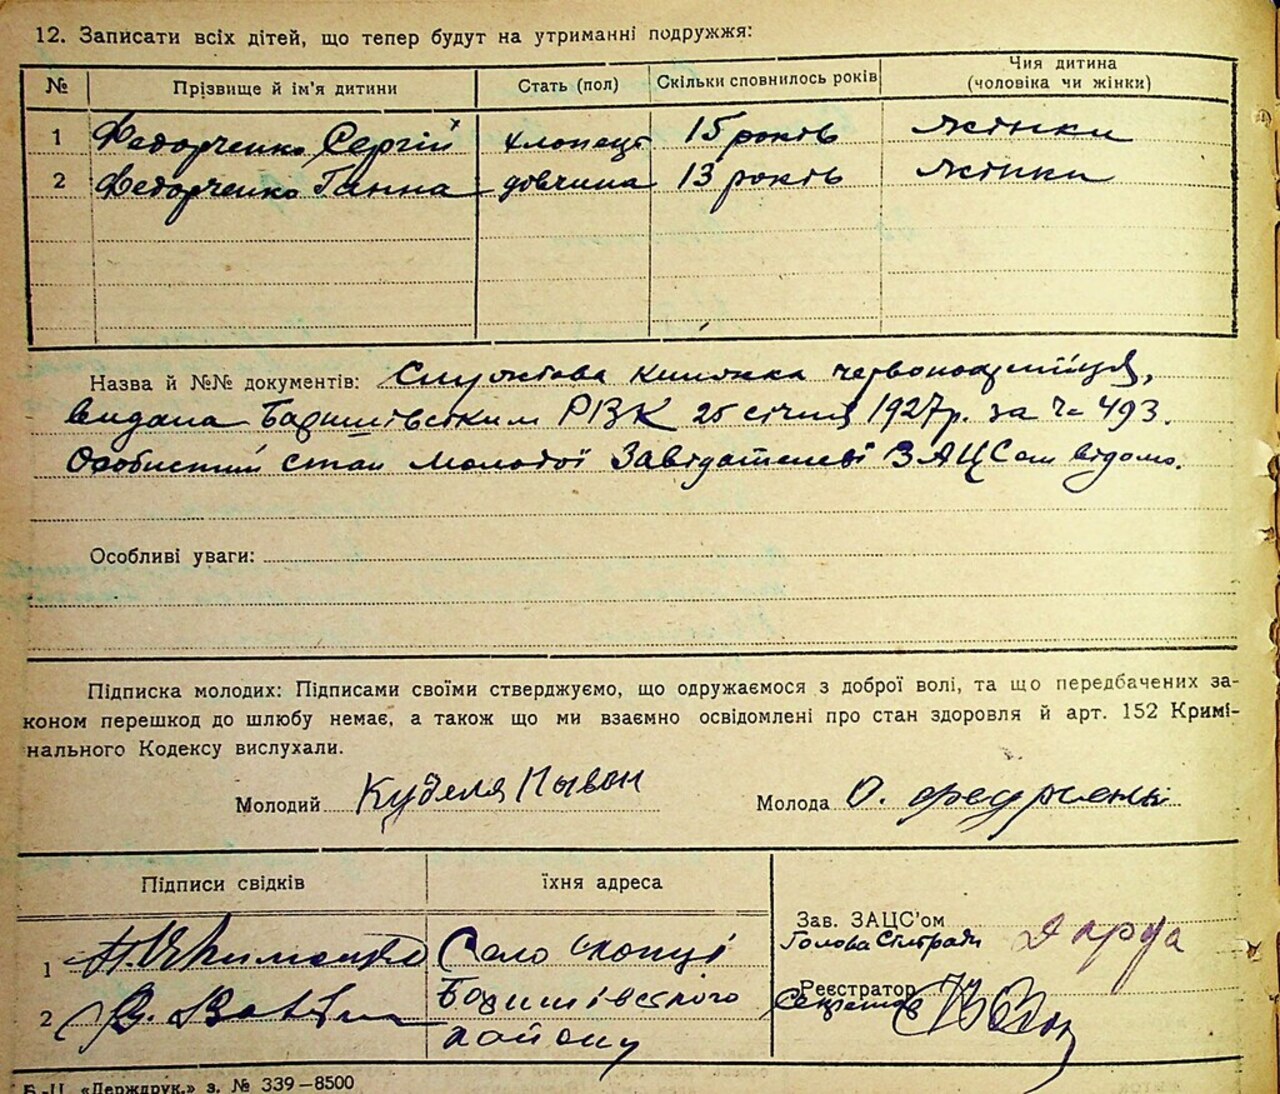 12. Записати всіх дітей, що тепер будут на утриманні подружжя:
№ Прізвище й ім'я дитини Стать (пол) Скільки сповнилось років Чия дитина (чоловіка чи жінки)
1 Федорченко Сергій хлопець 15 років жінки
2 Федорченко Ганна дівчина 13 років жінки
Назва й №№ документів: Службова книжка червоноармійця,
видана Баришівським РВК 25 січня 1927 р. за ч. 493.
Особистий стан молодої Завідателеві ЗАЦСом відомо.
Особливі уваги:
Підписка молодих: Підписами своїми стверджуємо, що одружаємося з доброї волі, та що передбачених за-
коном перешкод до шлюбу немає, а також що ми взаємно освідомлені про стан здоровля й арт. 152 Кримі-
нального Кодексу вислухали.
Молодий Куделя Пывон Молода О.
Підписи свідків їхня адреса
Зав. ЗАЦС'ом
Голова Сільради
1 Село Скопці
Реєстратор
Секретар
2 Баришівського
району
Б.-Ц. „Держдрук.” з. № 339—8500